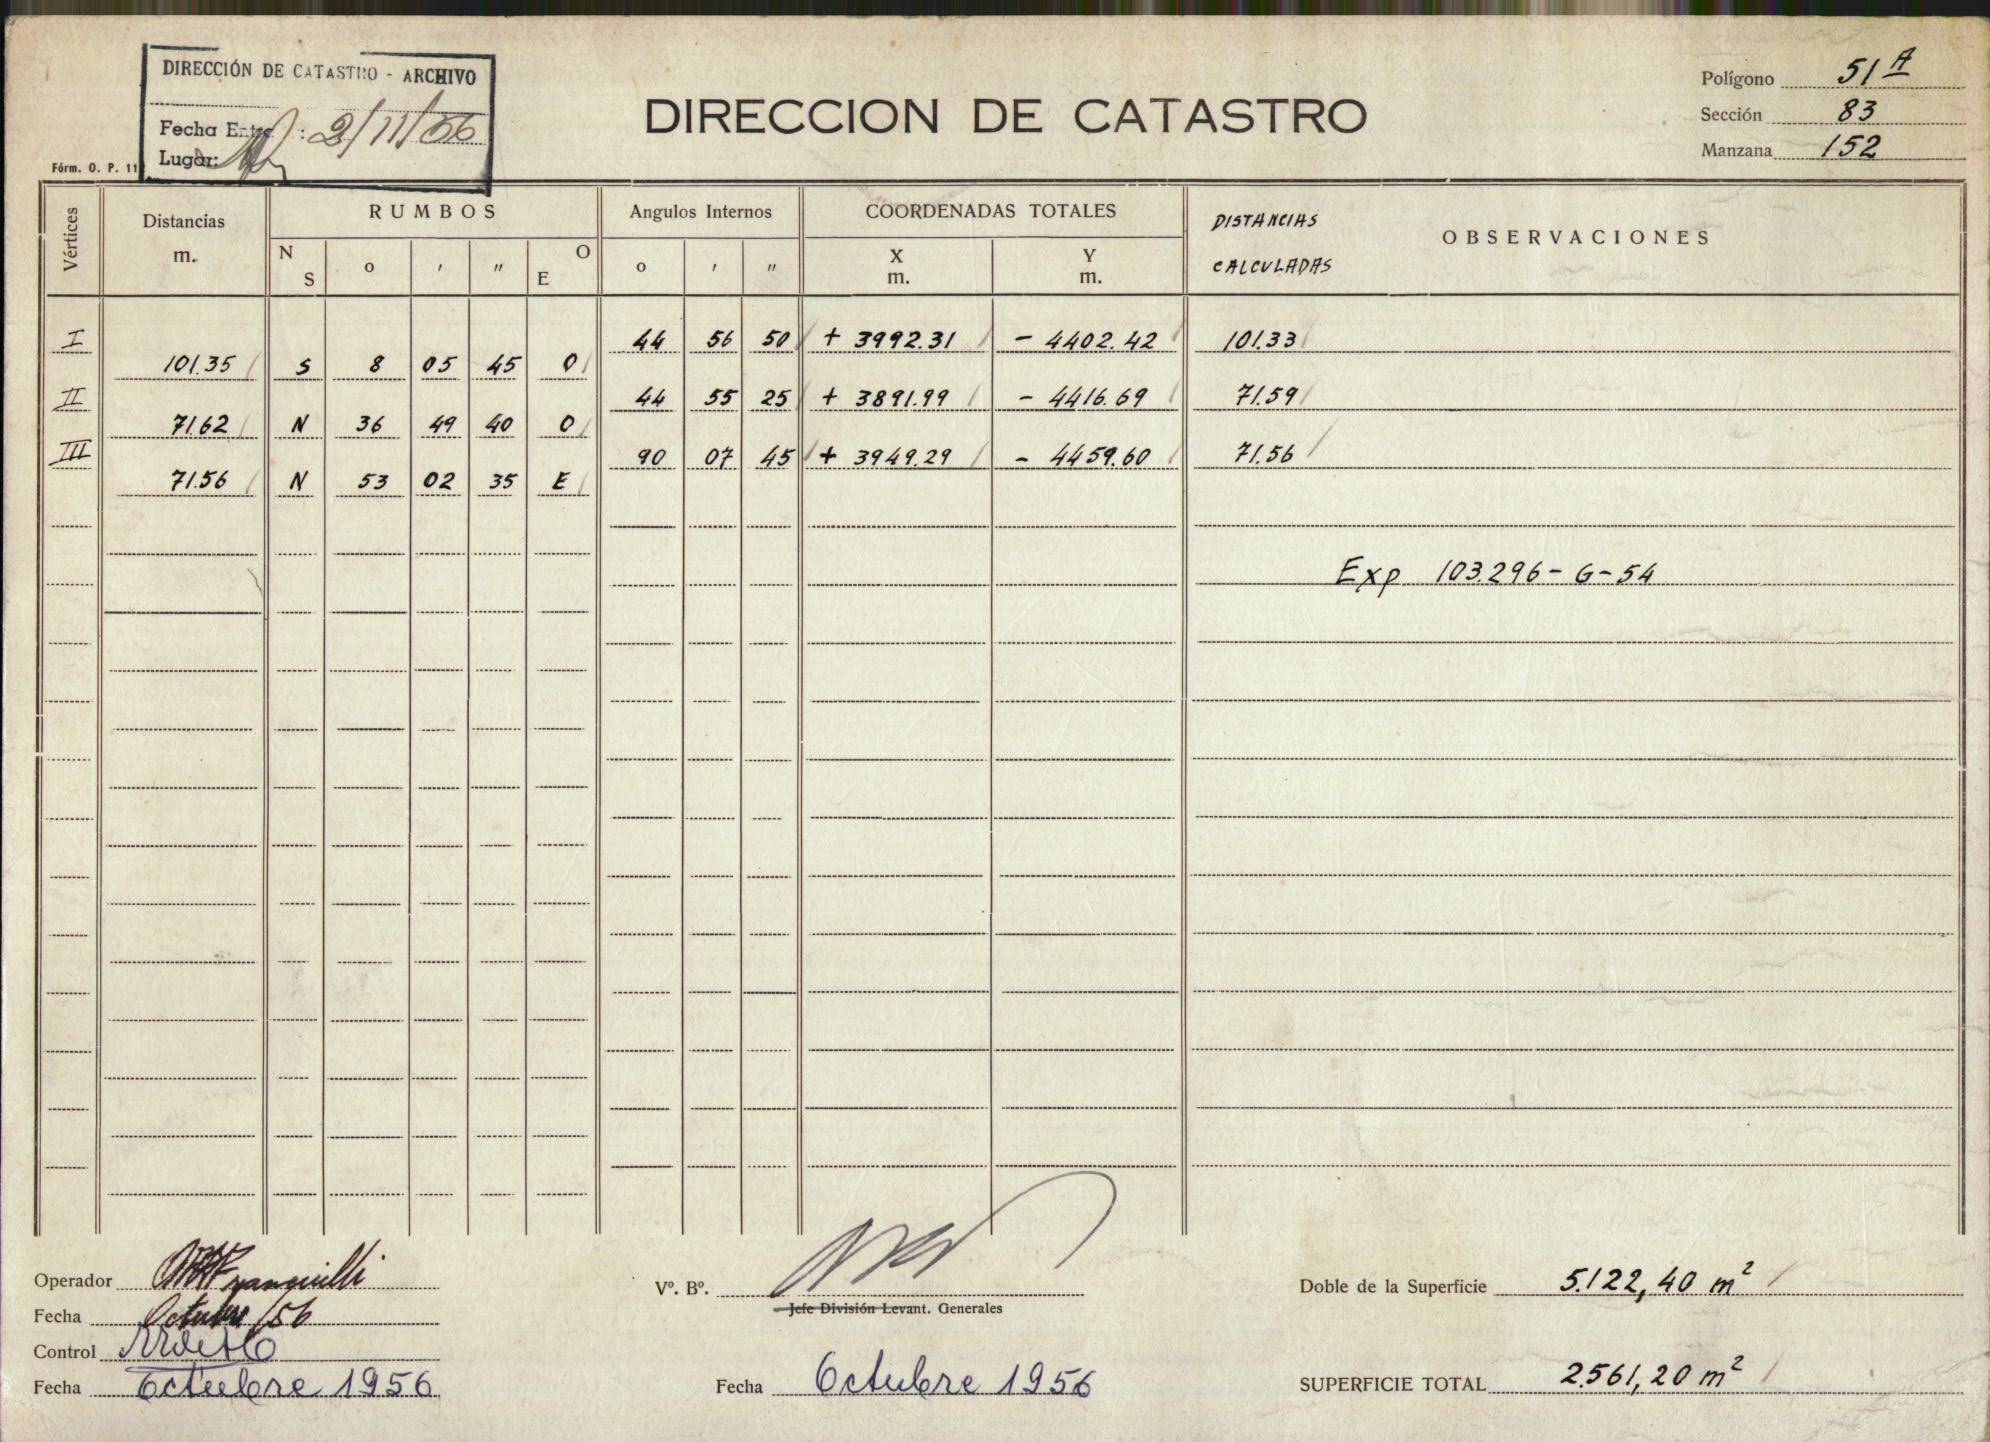 DIRECCIÓN DE CATASTRO - ARCHIVO
Fecha Entra : 2/11/56
Lugar:
Fórm. O. P. 11
DIRECCION DE CATASTRO
Polígono 51 A
Sección 83
Manzana 152
Vértices Distancias m. RUMBOS Angulos Internos COORDENADAS TOTALES DISTANCIAS CALCULADAS OBSERVACIONES
N S o ' " O E o ' " X m. Y m.
I 44 56 50 + 3992.31 - 4402.42 101.33
101.35 S 8 05 45 O
II 44 55 25 + 3891.99 - 4416.69 71.59
71.62 N 36 49 40 O
III 90 07 45 + 3949.29 - 4459.60 71.56
71.56 N 53 02 35 E
Exp 103.296-G-54
Operador
Fecha Octubre/56
Control
Fecha Octubre 1956
Vº. Bº.
Jefe División Levant. Generales
Fecha Octubre 1956
Doble de la Superficie 5.122,40 m²
SUPERFICIE TOTAL 2.561,20 m²